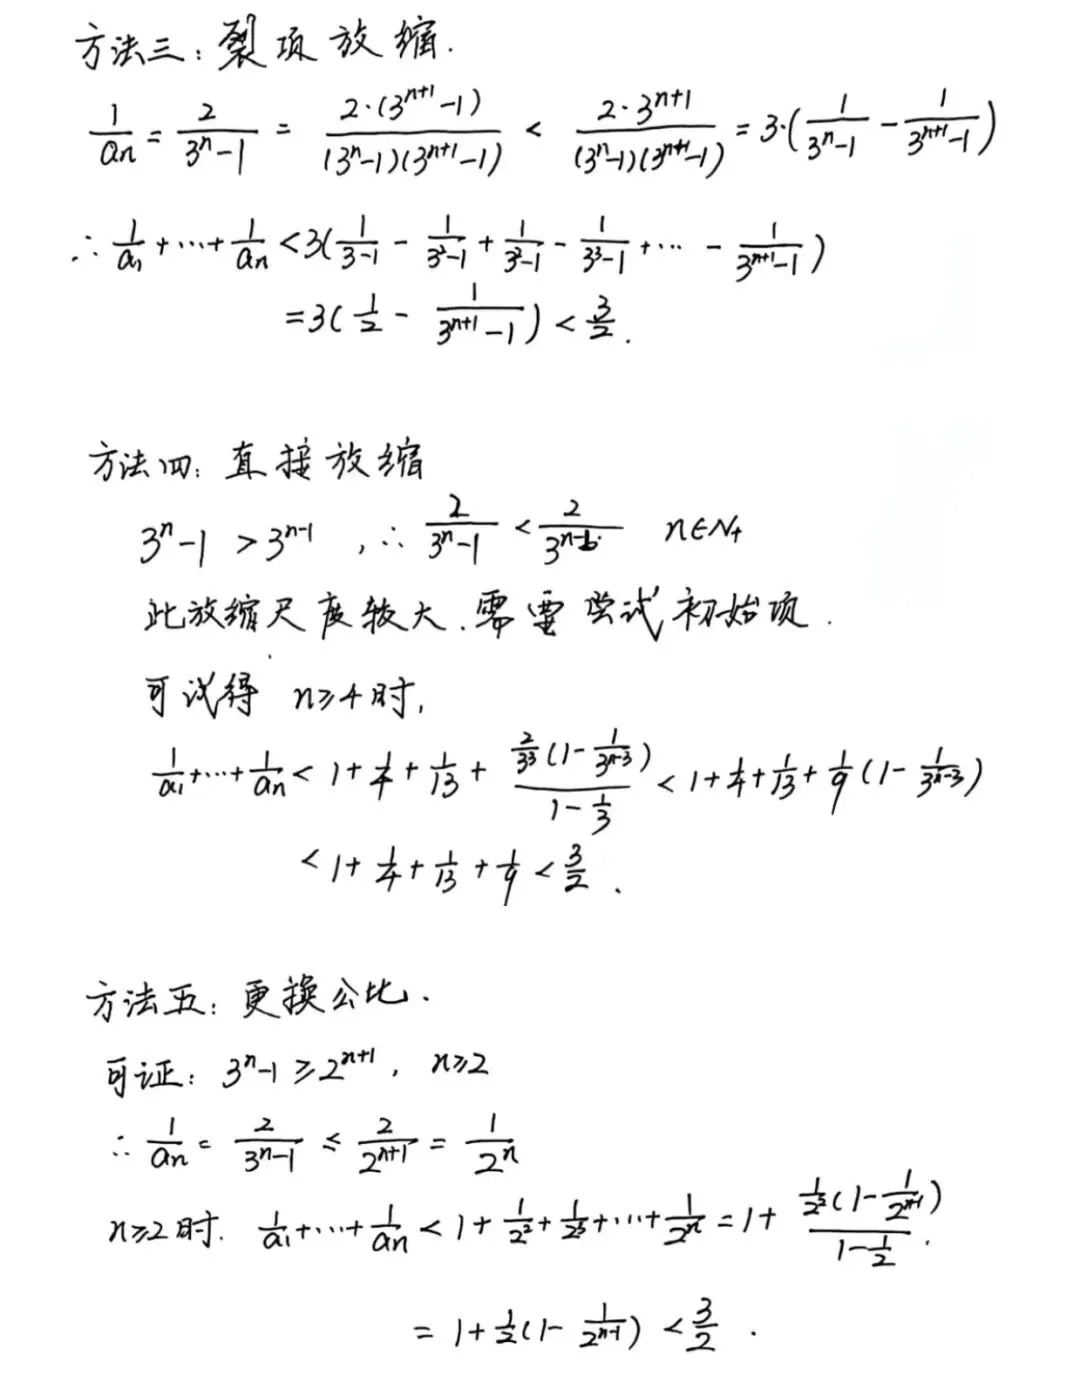 方法三：裂项放缩.
1/an = 2/(3^n-1) = 2·(3^(n+1)-1)/((3^n-1)(3^(n+1)-1)) < 2·3^(n+1)/((3^n-1)(3^(n+1)-1)) = 3·(1/(3^n-1) - 1/(3^(n+1)-1))
∴ 1/a₁+⋯+1/an < 3(1/(3-1) - 1/(3²-1) + 1/(3²-1) - 1/(3³-1) +⋯ - 1/(3^(n+1)-1))
=3(1/2 - 1/(3^(n+1)-1)) < 3/2.
方法四：直接放缩
3^n-1 > 3^(n-1) ,∴ 2/(3^n-1) < 2/3^(n-1) n∈N+
此放缩尺度较大.需要尝试初始项.
可试得 n≥4时,
1/a₁+⋯+1/an < 1+1/4+1/13+ (2/3³(1-1/3^(n-3)))/(1-1/3) < 1+1/4+1/13+1/9(1-1/3^(n-3))
< 1+1/4+1/13+1/9 < 3/2.
方法五：更换公比.
可证：3^n-1≥2^(n+1), n≥2
∴ 1/an = 2/(3^n-1) ≤ 2/2^(n+1) = 1/2^n
n≥2时. 1/a₁+⋯+1/an < 1+1/2²+1/2³+⋯+1/2^n = 1+ (1/2²(1-1/2^(n-1)))/(1-1/2).
= 1+1/2(1-1/2^(n-1)) < 3/2.